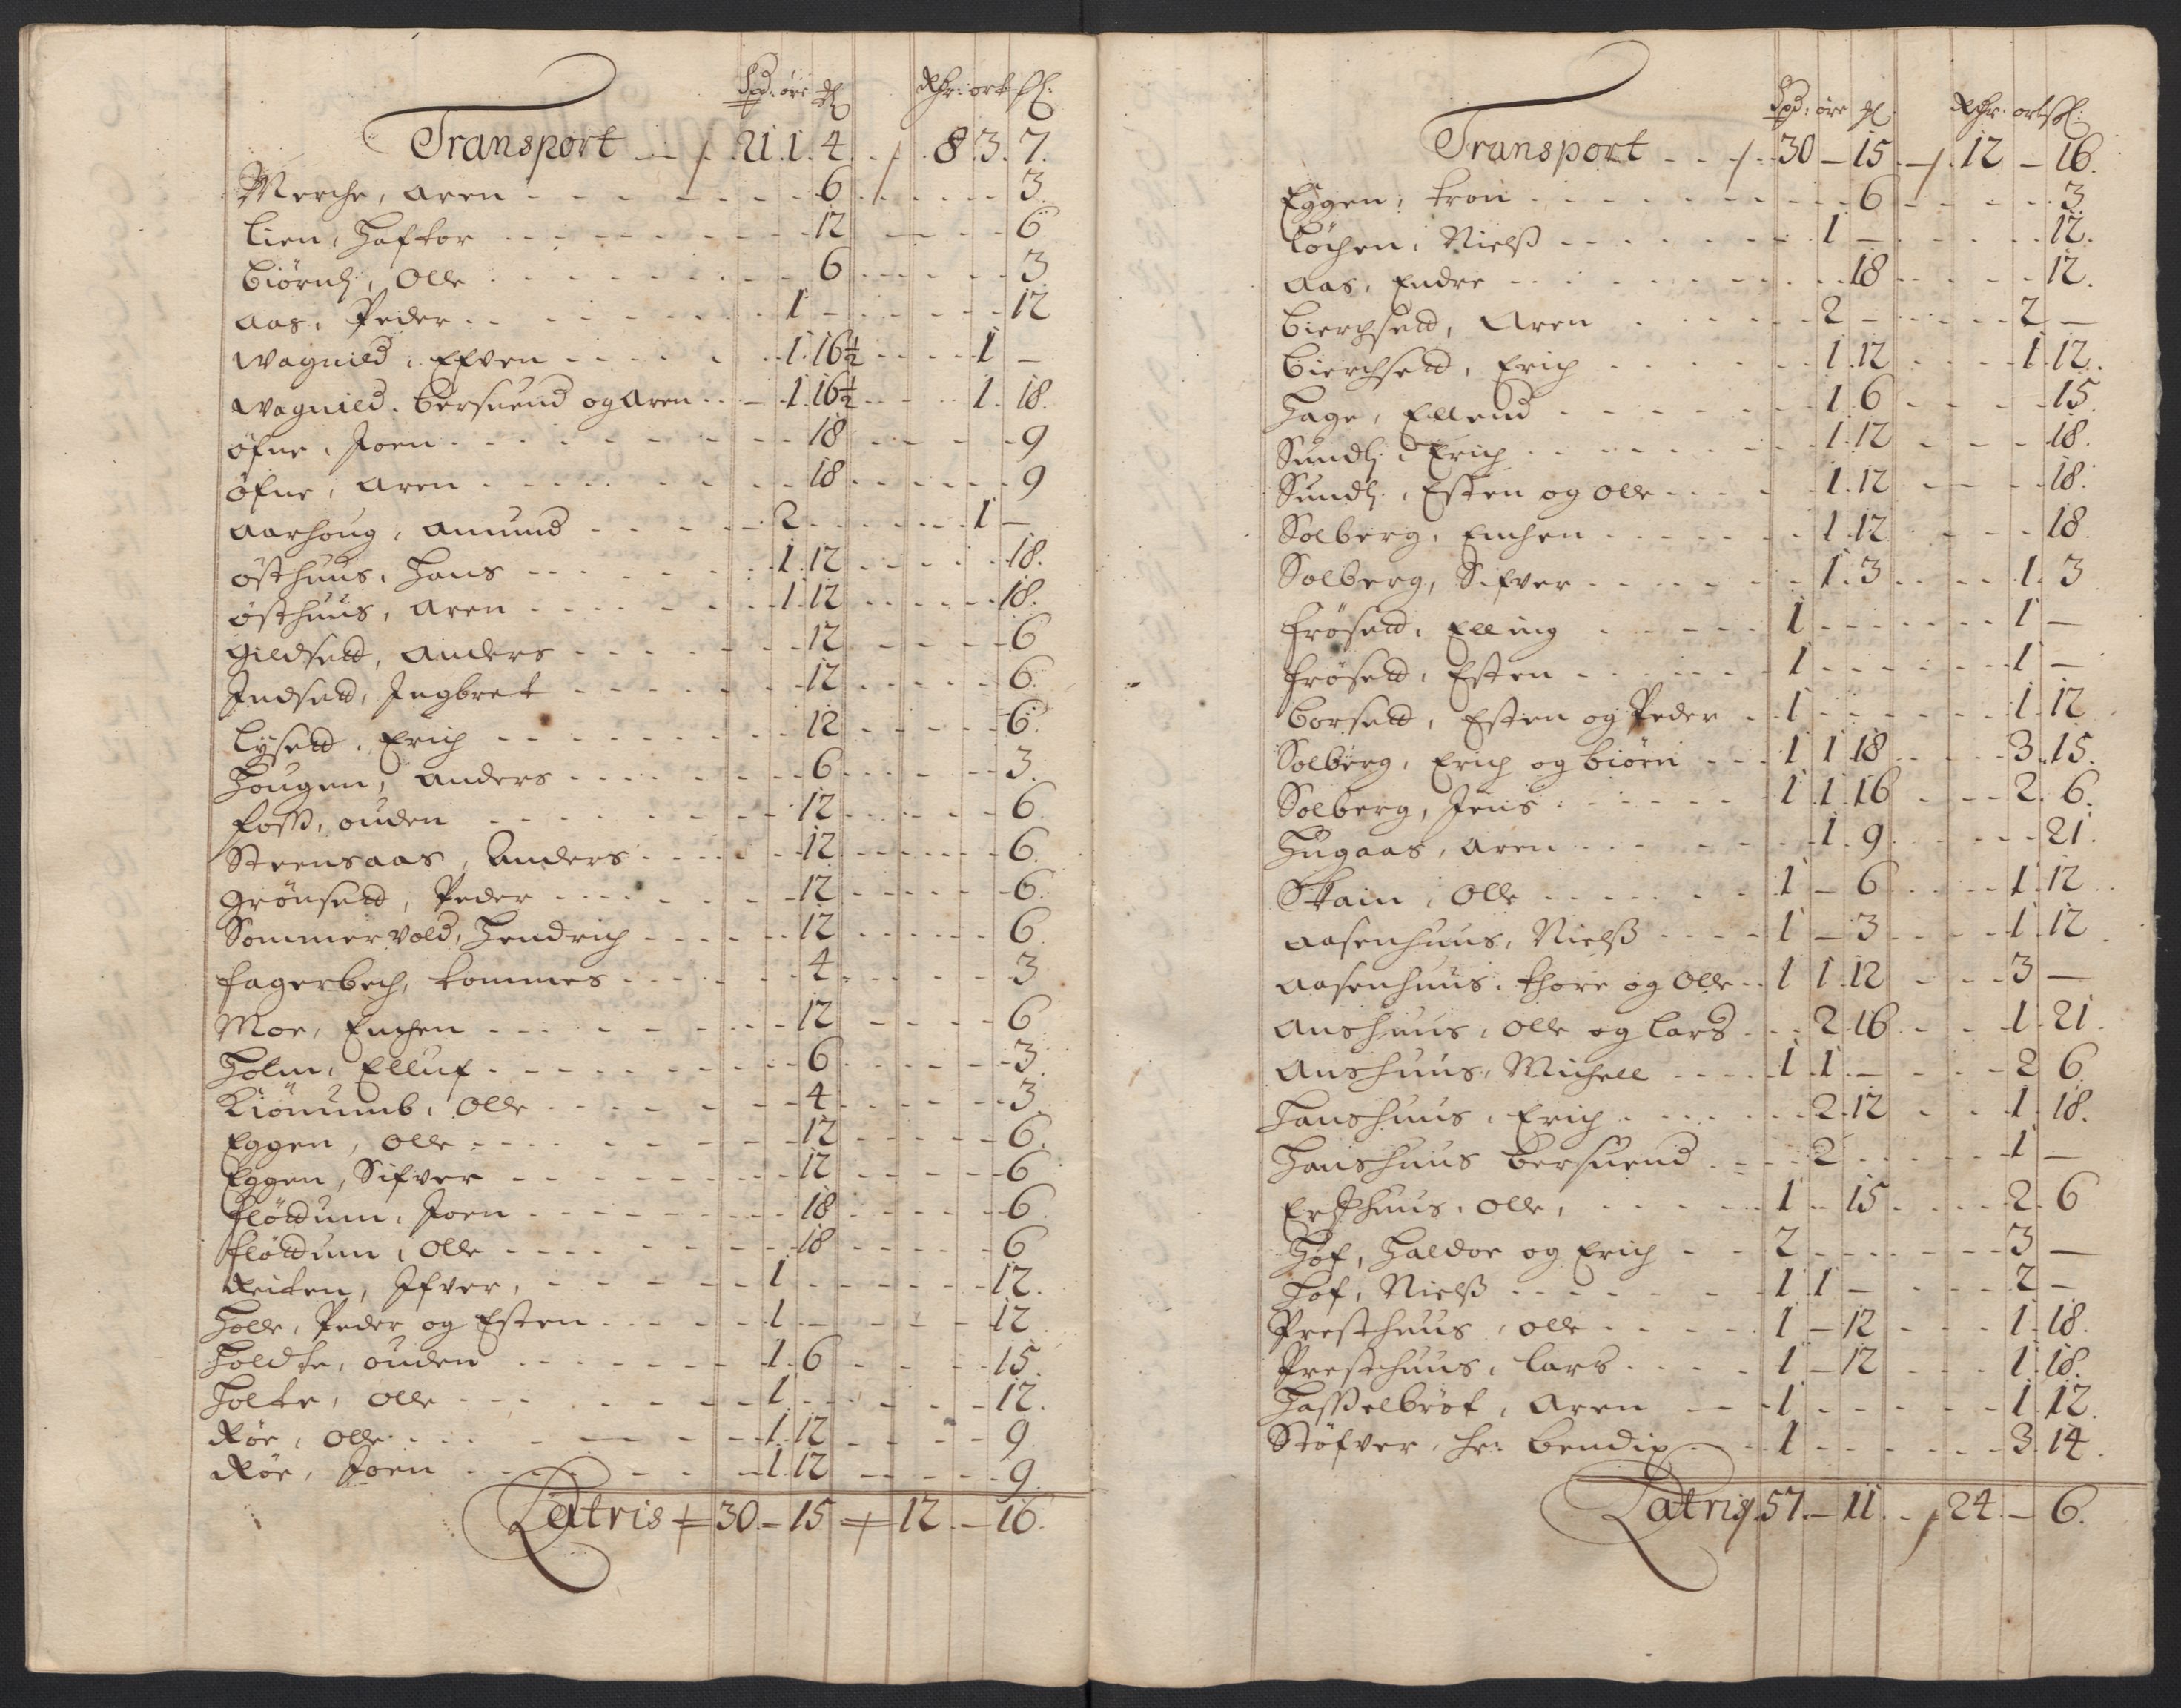 Spd: øre ₰ Rdr: ort ß:
Transport - - /. 21. 1. 4. - /. 8. 3. 7.
Merche, Aren - - - 6 - - - 3.
Lien, Haftor - - - 12 - - - 6
Biørnlj, Olle - - - 6 - - - 3
Aas, Peder - - - 1 - - - - 12
Wagnild, Efven - - - 1. 16½ - - - 1 -
Wagnild, Bersuend og Aren - - 1. 16½ - - - 1. 18.
Øfne, Joen - - - 18 - - - 9
Øfne, Aren - - - 18 - - - 9
Aarhoug, Amund - - - 2 - - - 1 -
Østhuus, Hans - - - 1. 12 - - - 18.
Østhuus, Aren - - - 1. 12 - - - 18.
Gildsett, Anders - - - 12 - - - 6
Indsett, Ingbret - - - 12 - - - 6.
Lysett, Erich - - - 12 - - - 6.
Hougen, Anders - - - 6 - - - 3.
Foss, Ouden - - - 12 - - - 6.
Steensaas, Anders - - - 12 - - - 6.
Grönsett, Peder - - - 12 - - - 6.
Sommervold, Hendrich - - - 12 - - - 6
Fagerbech, Tommes - - - 4 - - - 3
Moe, Enchen - - - 12 - - - 6
Holm, Elluf - - - 6 - - - 3.
Kiönumb, Olle - - - 4 - - - 3.
Eggen, Olle - - - 12 - - - 6.
Eggen, Sifver - - - 12 - - - 6
Flöttum, Joen - - - 18 - - - 6.
Flöttum, Olle - - - 18 - - - 6
Reiten, Ifver, - - - 1 - - - 12.
Holle, Peder og Esten - - - 1 - - - - 12.
Holdte, Ouden - - - 1. 6 - - - 15.
Holte, Olle - - - 1 - - - 12.
Røe, Olle - - - 1. 12 - - - 9
Røe, Joen - - - 1. 12 - - - 9.
Latris / 30 - 15 / 12 - 16.
Spd: øre ₰. Rdr: ort ß:
Transport - - /. 30 - 15 - /. 12 - 16.
Eggen, Tron - - - 6 - - - 3
Løchen, Nielß - - - 1 - - - - 12.
Aas, Endre - - - 18 - - - 12.
Bierchsett, Aren - - - 2 - - - - 2 -
Bierchsett, Erich - - - 1. 12 - - - 1. 12.
Hage, Ellend - - - 1. 6 - - - 15.
Sundlj, Erich - - - 1. 12 - - - 18.
Sundlj, Esten og Olle - - - 1. 12 - - - 18.
Solberg, Enchen - - - 1. 12 - - - 18.
Solberg, Sifver - - - 1. 3 - - - 1. 3
Frøsett, Elling - - - 1 - - - 1 -
Frøsett, Esten - - - 1 - - - 1 -
Borsett, Esten og Peder - 1 - - - 1. 12
Solberg, Erich og Biörn - - - 1 1 18 - - - 3. 15.
Solberg, Jens - - - 1. 1. 16 - - - 2. 6.
Hugaas, Aren - - - 1. 9 - - - 21.
Skain, Olle - - - 1 - 6 - - - 1. 12
Aasenhuus, Nielß - - - 1 - 3 - - - 1. 12
Aasenhuus, Thore og Olle - - 1 1. 12 - - - 3 -
Anshuus, Olle og Lars - - - 2. 16 - - 1. 21.
Anshuus, Michell - - - 1. 1. - - - - 2 6
Hanshuus, Erich - - - 2. 12 - - 1. 18.
Hanshuus Bersuend - - - 2 - - - 1 -
huus, Olle, - - - 1 - 15 - - - 2. 6
Hof, Haldor og Erich - - 2 - - - 3 -
Hof, Nielß - - - 1 1 - - - - 2 -
Presthuus, Olle - - - 1 - 12 - - - 1. 18.
Presthuus, Lars - - - 1 - 12 - - - 1. 18.
Hasselbröt, Aren - - 1 - - - 1. 12.
Støfver, hr: Bendix - 1 - - - 3. 14.
Latris 57. - 11. - / 24. - 6.